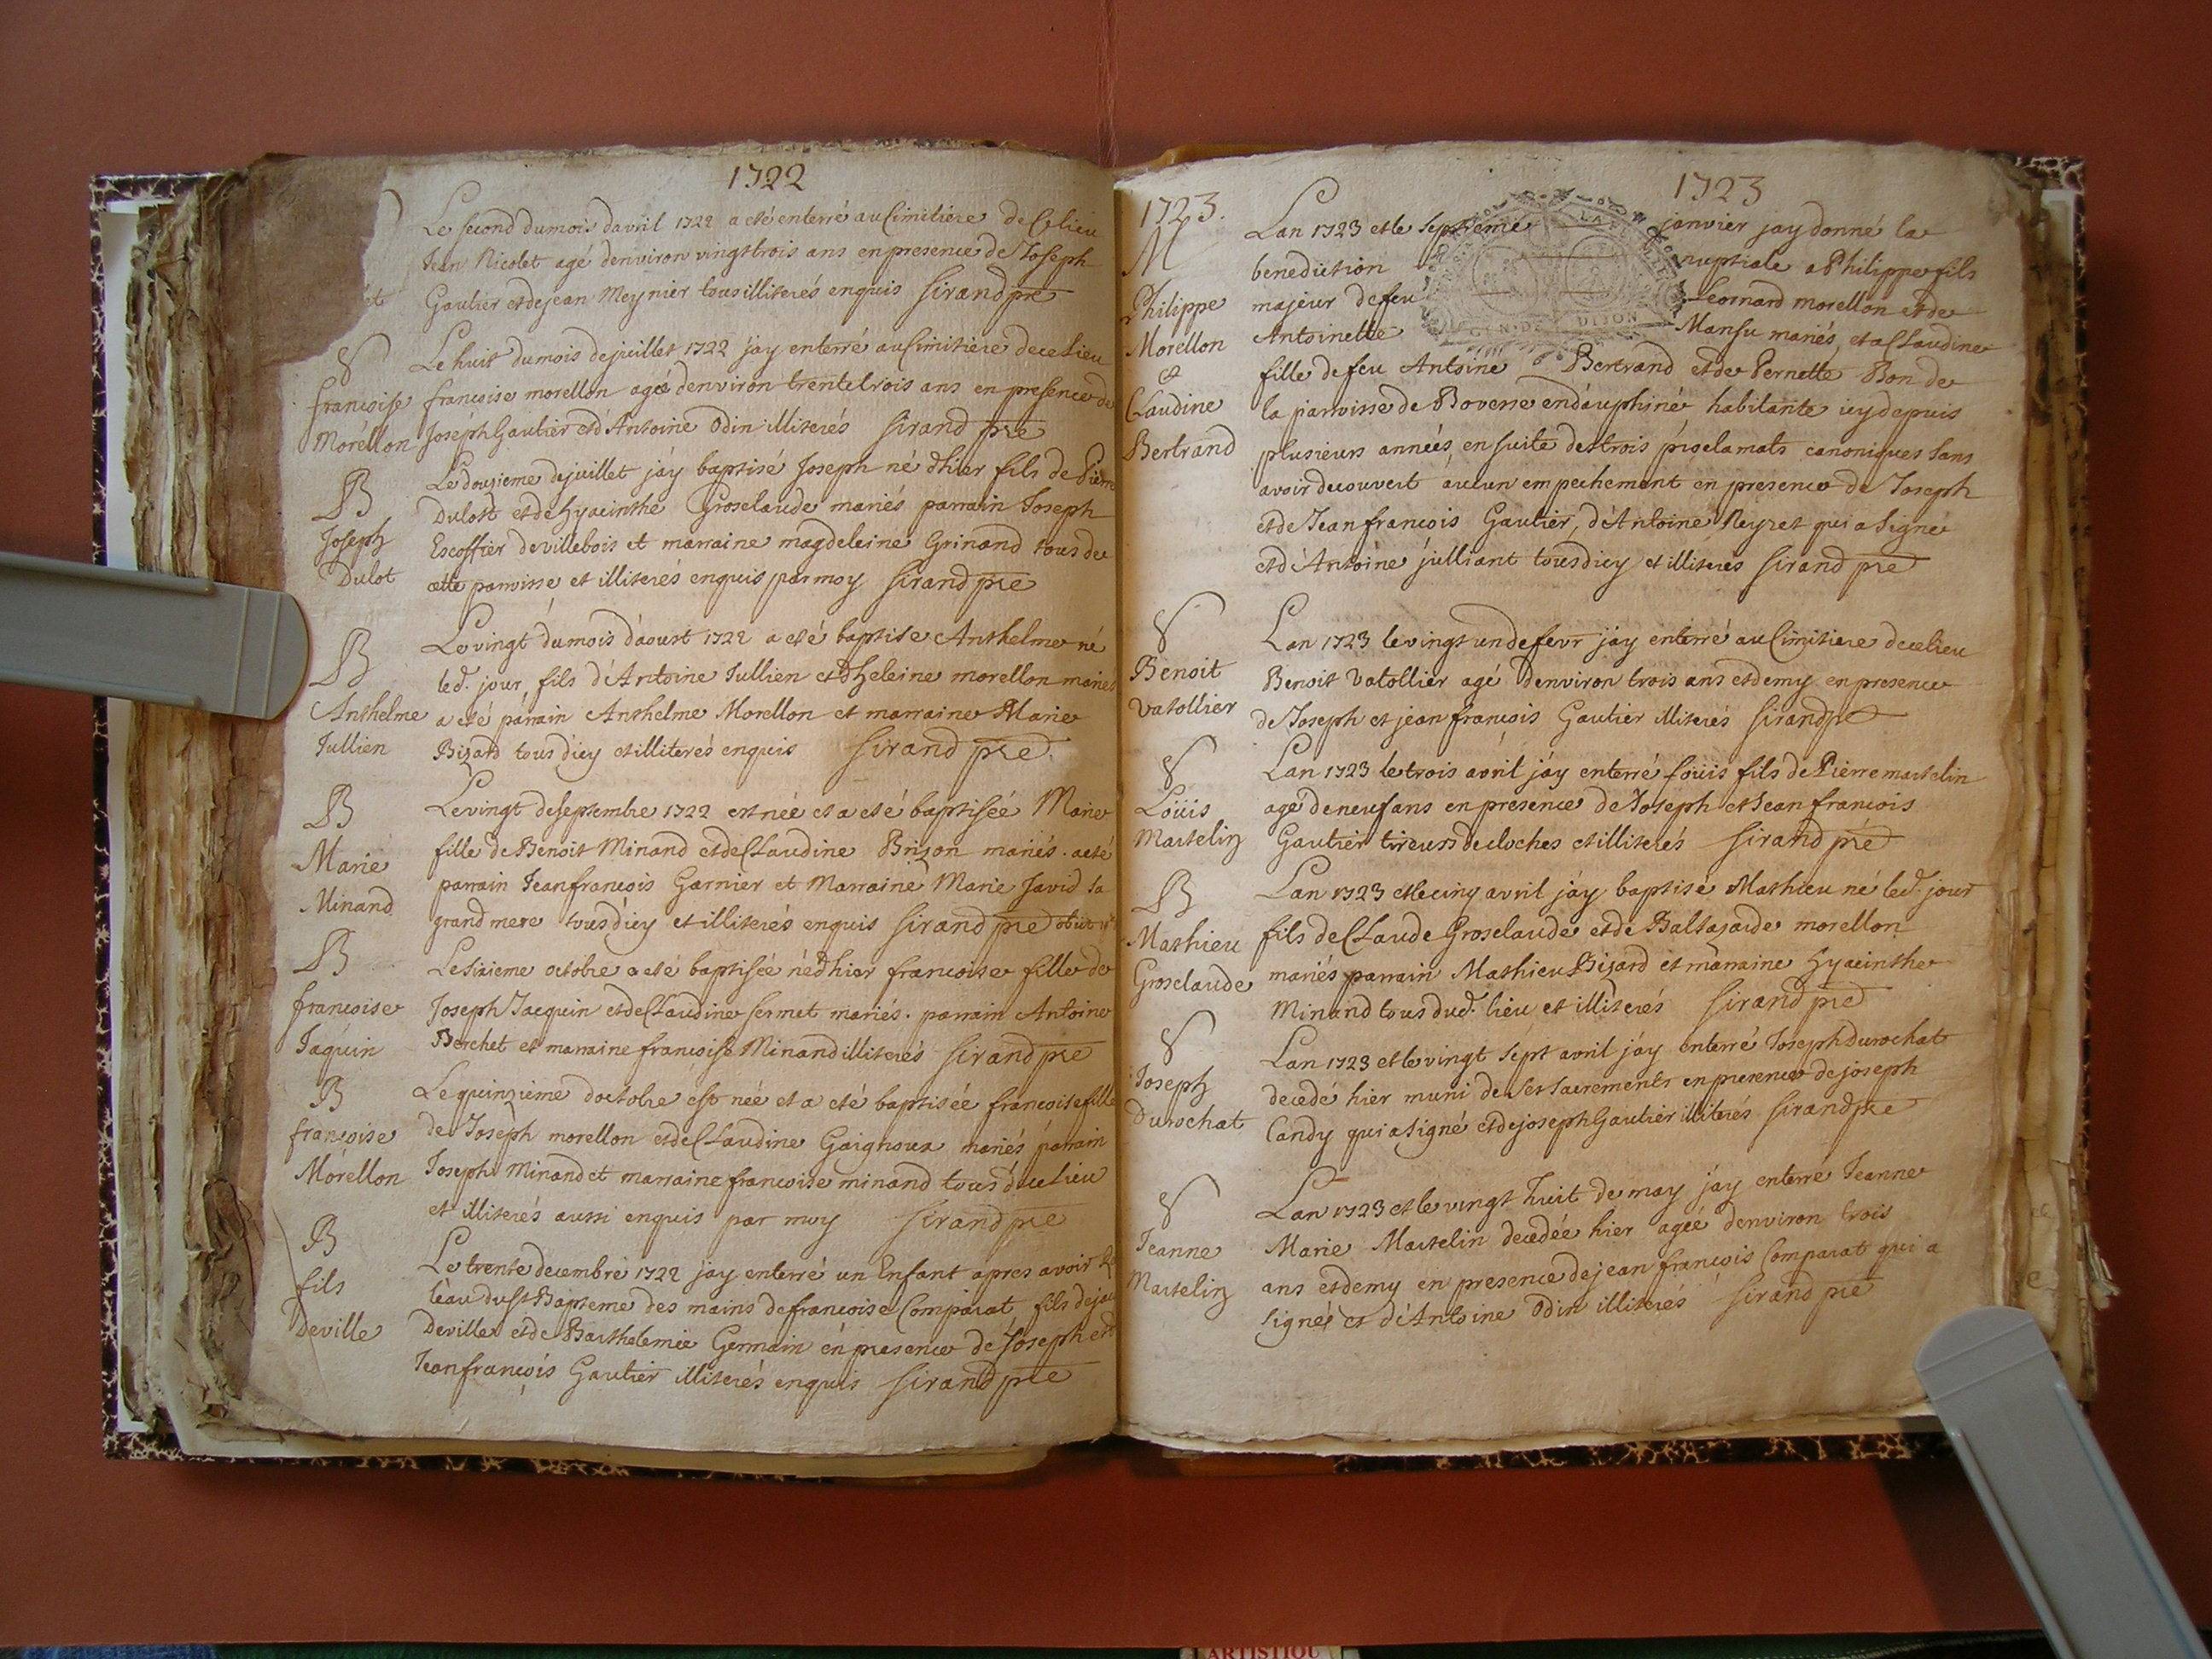 1722
Le second du mois davril 1722 a eté enterré au Cimitiere de Celieu
Jean Nicolet agé denviron vingt trois ans en presence de Joseph
et
Gautier et de jean Meynier tous illiterés enquis Sirand pre
S
francoise
Morellon
Le huit du mois de juillet 1722 jay enterré au Cimitiere de ce Lieu
francoise morellon agée denviron trente trois ans en presence de
Joseph Gautier et d'Antoine Odin illiterés Sirand pre
B
Joseph
Dulot
Le douzieme de juillet jay baptisé Joseph né dhier fils de Pierre
Dulott et de Hyacinthe Groselaude mariés parrain Joseph
Escoffier de villebois et marraine magdeleine Grinand tous de
cette parroisse et illiterés enquis par moy Sirand pre
B
Anthelme
Jullien
Le vingt du mois daoust 1722 a eté baptise Anthelme né
led. jour, fils d'Antoine Jullien et dheleine morellon mariés
a eté parrain Anthelme Morellon et marraine Marie
Bizard tous dicy et illiterés enquis Sirand pre
B
Marie
Minand
Le vingt de septembre 1722 est née et a eté baptisée Marie
fille de Benoit Minand et de Claudine Brizon mariés. a eté
parrain Jean francois Garnier et Marraine Marie Javid sa
grand mere tous dicy et illiterés enquis Sirand pre obiit
B
francoise
Jaquin
Le sixieme octobre a eté baptisée née dhier francoise fille de
Joseph Jacquin et de Claudine Sermet mariés. parrain Antoine
Berchet et marraine francoise Minand illiterés Sirand pre
B
francoise
Morellon
Le quinzieme doctobre est née et a eté baptisée francoise fille
de Joseph morellon et de Claudine Gaignoux mariés parrain
Joseph Minand et marraine francoise minand tous de ce Lieu
et illiterés aussi enquis par moy Sirand pre
B
fils
Deville
Le trente decembre 1722 jay enterré un Enfant apres avoir
leau du St Bapteme des mains de francoise Comparat fils de
Deville et de Barthelemie Germain en presence de Joseph et
Jean francois Gautier illiterés enquis Sirand pre
1723
1723.
M
Philippe
Morellon
&
Claudine
Bertrand
Lan 1723 et le septieme janvier jay donné la
benediction nuptiale a Philippe fils
majeur de feu Leornard morellon et de
Antoinette Mansu mariés, et a Claudine
fille de feu Antoine Bertrand et de Pernette Bon de
la parroisse de Bovesse en dauphiné habitante icy depuis
plusieurs années, en suite des trois proclamats canoniques sans
avoir decouvert aucun empechement en presence de Joseph
et de Jean francois Gautier, d'Antoine Neyret qui a signé
et d'Antoine julliant tous dicy et illiterés Sirand pre
LA
GEN. DE DIJON
S
Benoit
Vatollier
Lan 1723 le vingt un de fevr jay enterré au Cimitiere de ce lieu
Benoit Vatollier agé denviron trois ans et demy en presence
de Joseph et jean francois Gautier illiterés Sirand pre
S
Loüis
Martelin
Lan 1723 le trois avril jay enterré Loüis fils de Pierre martelin
agé de neuf ans en presence de Joseph et Jean francois
Gautier tireurs de cloches et illiterés Sirand pre
B
Mathieu
Groselaude
Lan 1723 et le cinq avril jay baptisé Mathieu né led. jour
fils de Claude Groselaude et de Baltazarde morellon
mariés parrain Mathieu Bizard et marraine Hyacinthe
Minand tous dud. lieu et illiterés Sirand pre
S
Joseph
Durochat
Lan 1723 et le vingt sept avril jay enterré Joseph Durochat
decedé hier muni de ses sacrements en presence de joseph
Candy qui a signé et de joseph Gautier illiterés Sirand pre
S
Jeanne
Martelin
Lan 1723 et le vingt huit de may jay enterré Jeanne
Marie Martelin decedée hier agée denviron trois
ans et demy en presence de jean francois Comparat qui a
signé et d'Antoine Odin illiterés Sirand pre
ARTISTIQU